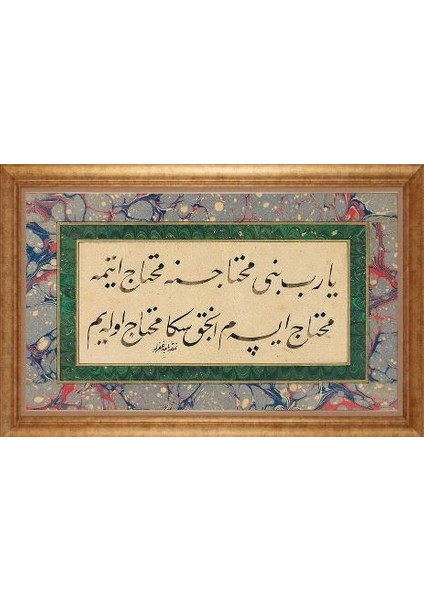 يارب بنى محتاجنه محتاج ايتمه
محتاج ايسه م انجق سكا محتاج اوله يم